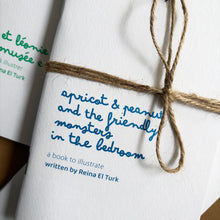 et léonie
musée e
à illustrer
Reina El Turk
apricot & peanut
and the friendly
monsters
in the bedroom
a book to illustrate
written by Reina El Turk